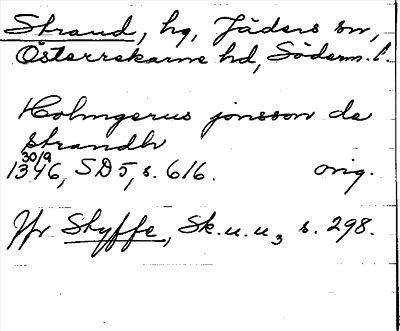 Strand, hg, Jäders sn,
Österrekarne hd, Söderm. l.
Holmgerus jonsson de
strandh
30/9
1346, SD 5, s. 616. orig.
Jfr Styffe, Sk.u.u₃ s. 298.